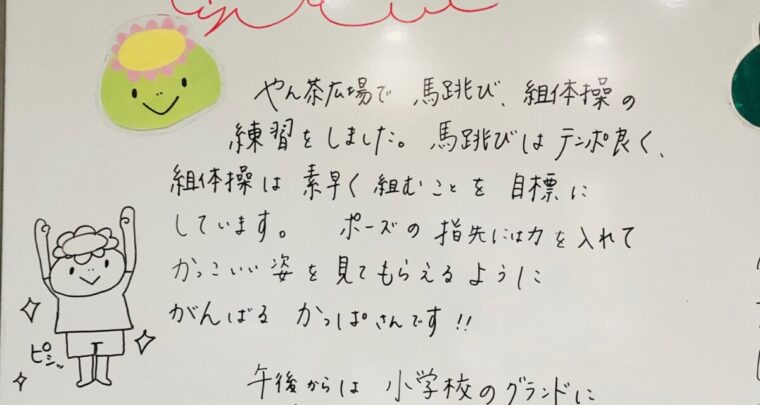 やん茶広場で 馬跳び、組体操の
練習をしました。馬跳びは テンポ良く、
組体操は 素早く 組むことを 目標に
しています。 ポーズの 指先には力を入れて
かっこいい 姿を 見てもらえるように
がんばる かっぱさんです!!
ピシッ
午後からは 小学校のグランドに